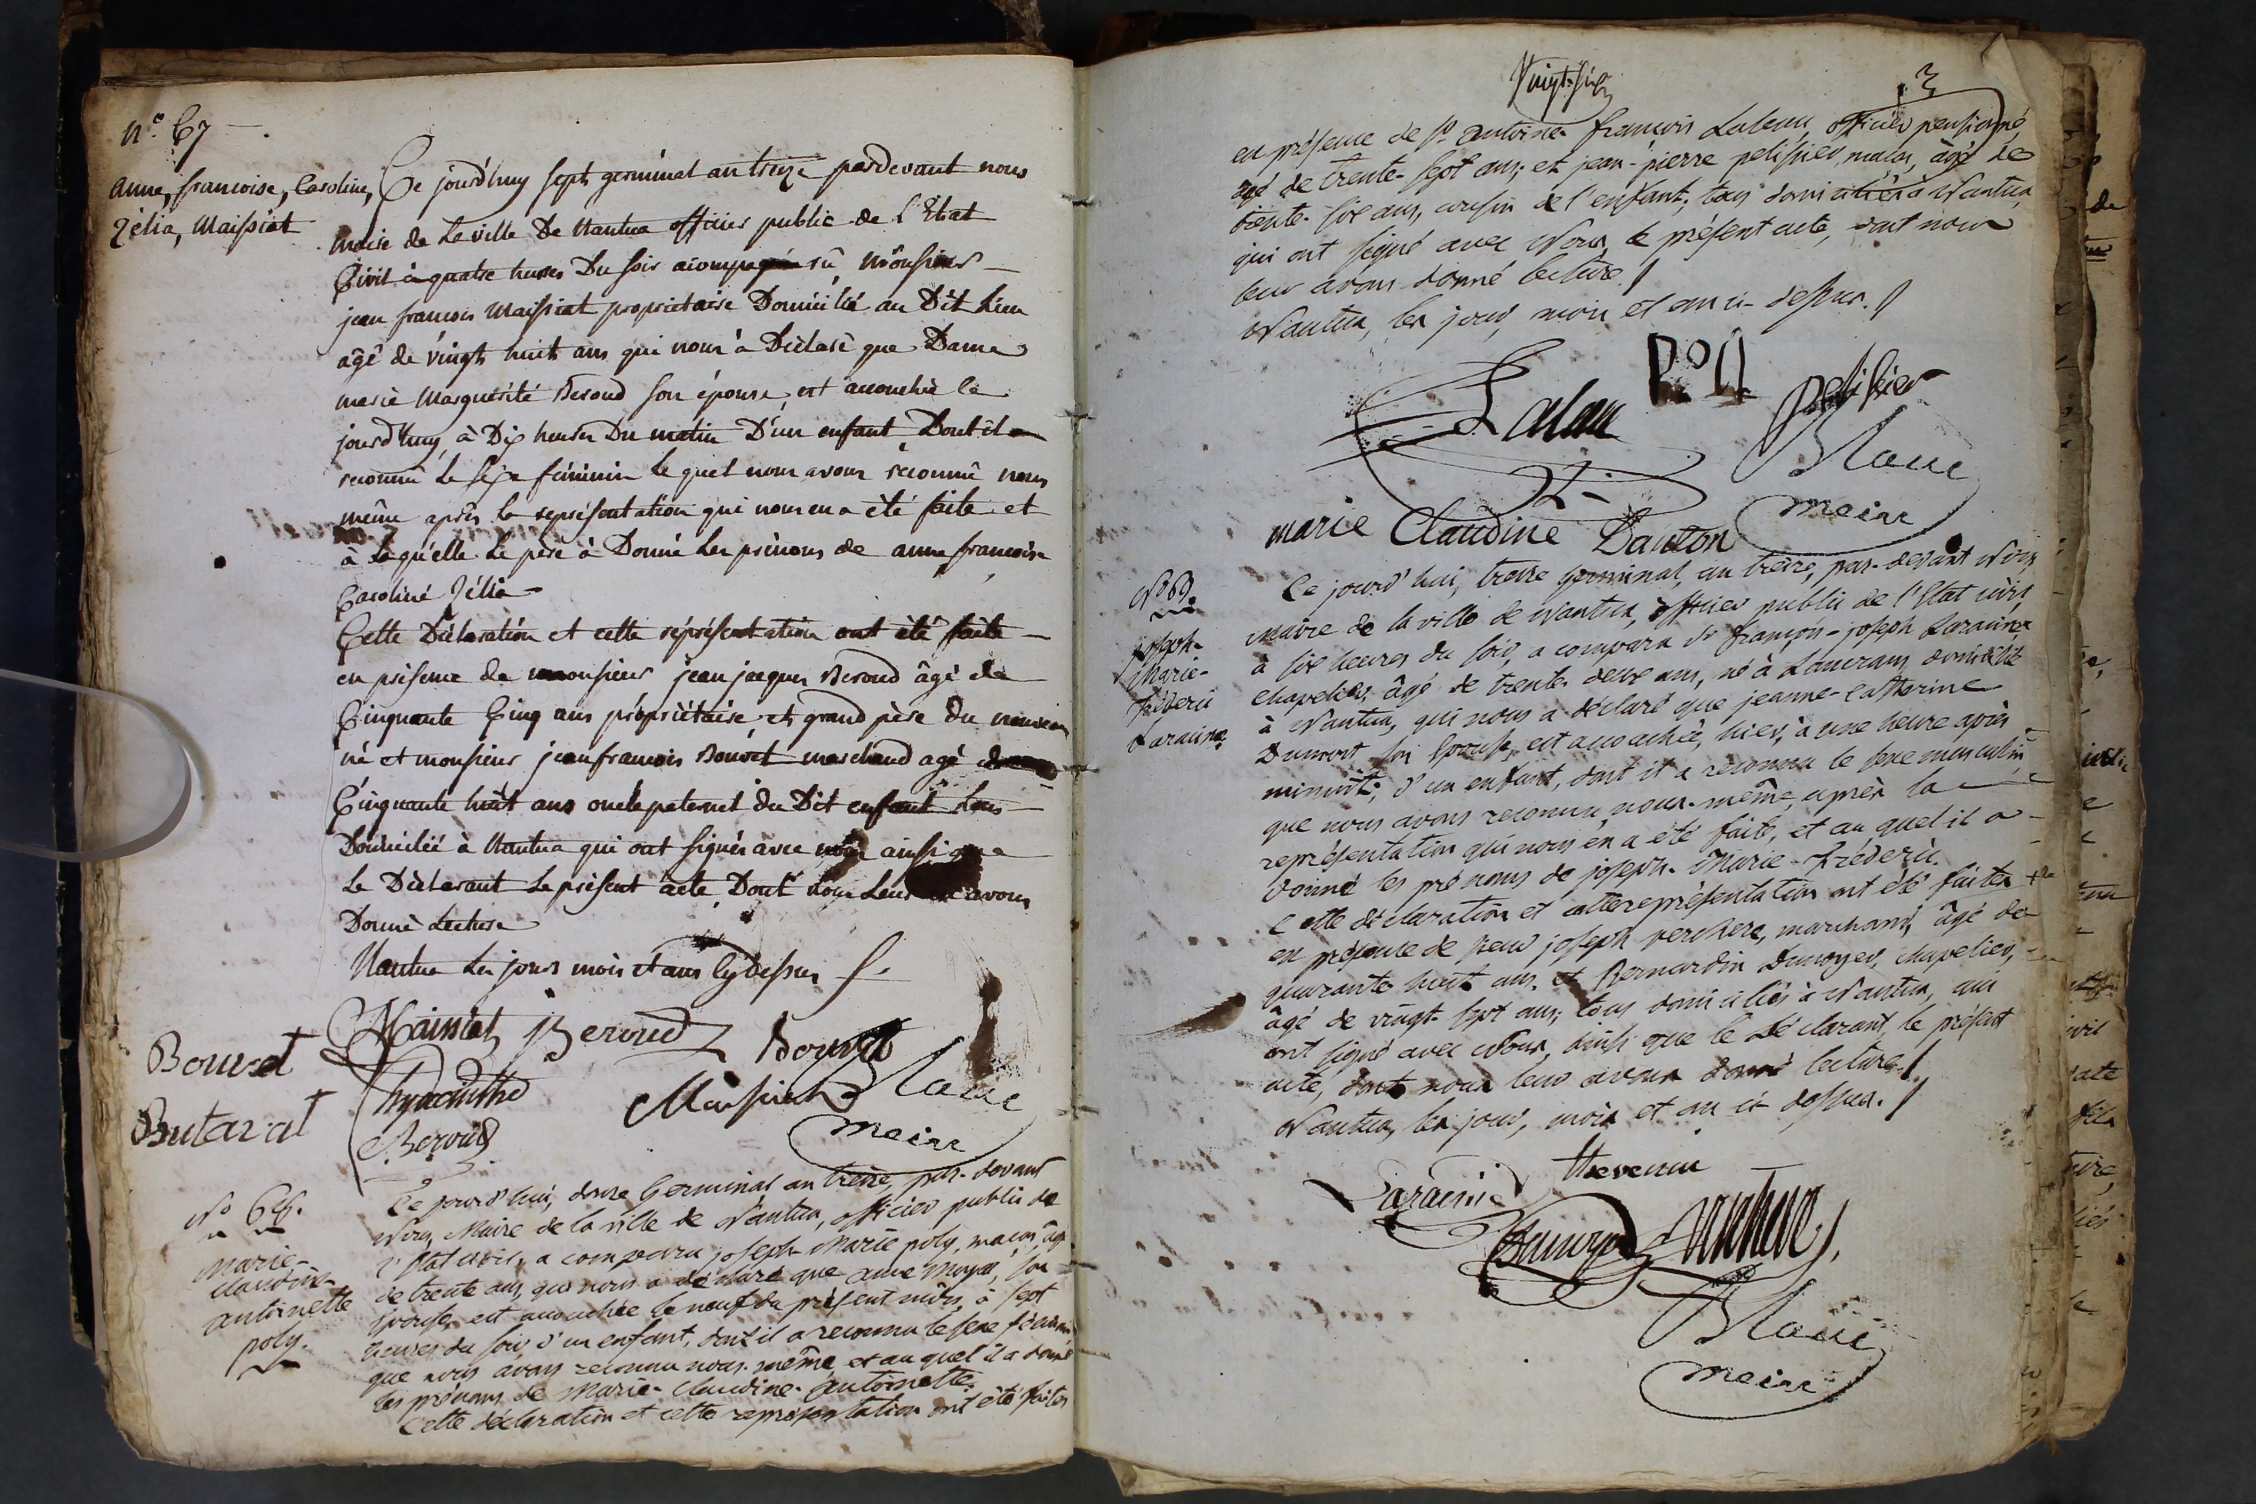 n.º 67
anne, francoise, Caroline,
Zélia, Maissiat
Ce jourd'huy sept germinal an treize pardevant nous
maire de la ville De Nantua officier public de l'Etat
Civil à quatre heures Du soir monsieur
jean francois Maissiat proprietaire Domicilié au Dit Lieu
âgé de vingt huit ans qui nous à Déclaré que Dame
marie Marguérité Beroud son épouse, est accouchée le
jourd'huy, à Dix heures Du matin D'un enfant Dont il a
reconnu Le sexe féminin le quel nous avons reconnu nous
même après la représentation qui nous en a été faite et
à laquelle le père à Donné Les prénoms de anne francoise
Caroline Zélia
Cette Déclaration et cette réprésentation ont été faite
en présence de monsieur jean jacques Beroud âgé de
Cinquante Cinq ans propriétaire et grand père du nouveau
né et monsieur jean francois Bouvet marchand agé de
Cinquante huit ans oncle paternel du Dit enfant tous
Domicilié à Nantua qui ont signés avec nous ainsi que
Le Déclarant le présent acte Dont nous Leur avons
Donné Lecture
Nantua Les jours mois et ans Cy dessus
Maissiat Beroud Bouvet
Bouvet
Butavat
hyacinthe
Beroud
Maissiat
maire
Nº 68.
marie-
claudine-
antoinette
poly.
Ce jourd'hui, douze Germinal an treize, par-devant
Nous, Maire de la ville de Nantua, officier public de
l'Etat civil, a comparu joseph Marie poly, maçon, âgé
de trente ans, qui nous a déclaré que son
épouse, est accouchée le neuf du présent mois, à sept
heures du soir, d'un enfant, dont il a reconnu le sexe féminin
que nous avons reconnu nous-même et au quel il a donné
les prénoms de Marie-Claudine-Antoinette.
Cette déclaration et cette représentation ont été faites
Vingt-six
3
en présence de Sr. antoine françois Lalau, officier pensionné
âgé de trente-sept ans; et jean-pierre pelissier, maçon, âgé de
trente-six ans, cousin de l'enfant; tous domiciliés à Nantua
qui ont signé avec Nous le présent acte, dont nous
leur avons donné lecture.
Nantua, les jour, mois et an ci-dessus.
Lalau
pelissier
maire
marie Claudine Danton
Nº 69.
joseph-
Marie-
fréderic
Ce jourd'hui, treize germinal, an treize, par-devant Nous,
Maire de la ville de Nantua, officier public de l'Etat civil,
à six heures du soir, a comparu Sr françois-joseph
chapelier, âgé de trente-deux ans, né à Lancrans, domicilié
à Nantua, qui nous a déclaré que jeanne-catherine
Dumont son épouse, est accouchée, hier, à une heure après
minuit, d'un enfant, dont il a reconnu le sexe masculin,
que nous avons reconnu, nous-même, après la
représentation qui nous en a été faite, et au quel il a
donné les prénoms de joseph-Marie-Fréderic.
Cette déclaration et cette représentation ont été faites
en présence de joseph verchere, marchand, âgé de
quarante-huit ans. et Bernardin Dunoyer, chapelier,
âgé de vingt-sept ans; tous domiciliés à Nantua, qui
ont signé avec Nous, ainsi que le Déclarant, le présent
acte, dont nous leur avons donné lecture.
Nantua, les jour, mois et an ci-dessus.
thevenin
Dunoyer
verchere
maire